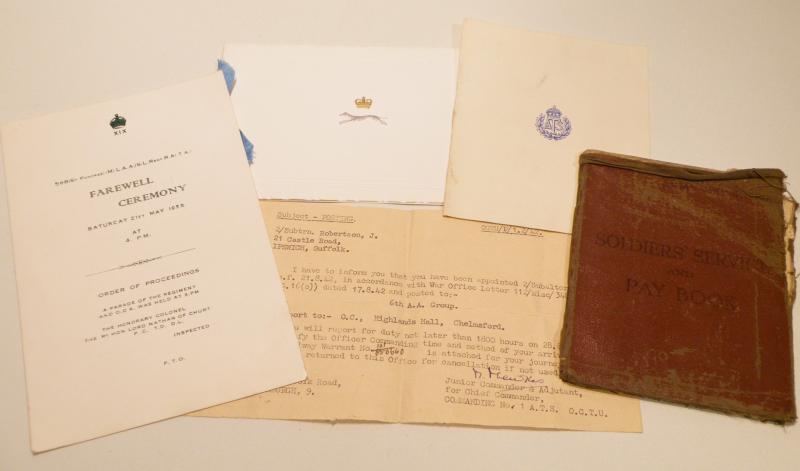 XIX
FAREWELL
CEREMONY
SATURDAY 21ST MAY 1955
AT
4 P.M.
ORDER OF PROCEEDINGS
A PARADE OF THE REGIMENT
AND O.C.A. WAS HELD AT 3.PM
THE HONORARY COLONEL
THE RT HON LORD NATHAN OF CHURT
P.C. T.D. D.L.
INSPECTED
P.T.O.
ATS
Subject - POSTING.
2/Subtrn. Robertson, J.
21 Castle Road,
IPSWICH, Suffolk.
I have to inform you that you have been appointed 2/Subaltern
.f. 21.8.42, in accordance with War Office Letter 112/Misc/
16(o)) dated 17.8.42 and posted to:-
6th A.A. Group.
port to:- O.C., Highlands Hall, Chelmsford.
u will report for duty not later than 1800 hours on 28.
fy the Officer Commanding time and method of your arriv
way Warrant No. is attached for your journe
returned to this Office for cancellation if not used
Road,
RGH, 9.
Junior Commander & Adjutant,
for Chief Commander,
COMMANDING No. 1 A.T.S. O.C.T.U.
SOLDIERS' SERVICE
AND
PAY BOOK